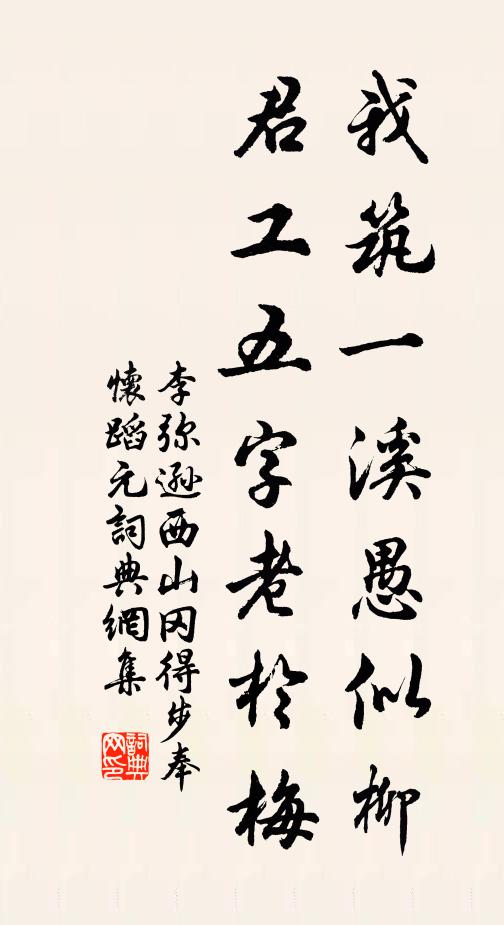 我筑一溪愚似柳
君工五字老於梅
李弥逊西山冈得步奉
懷蹈元詞典網集
詞典网印